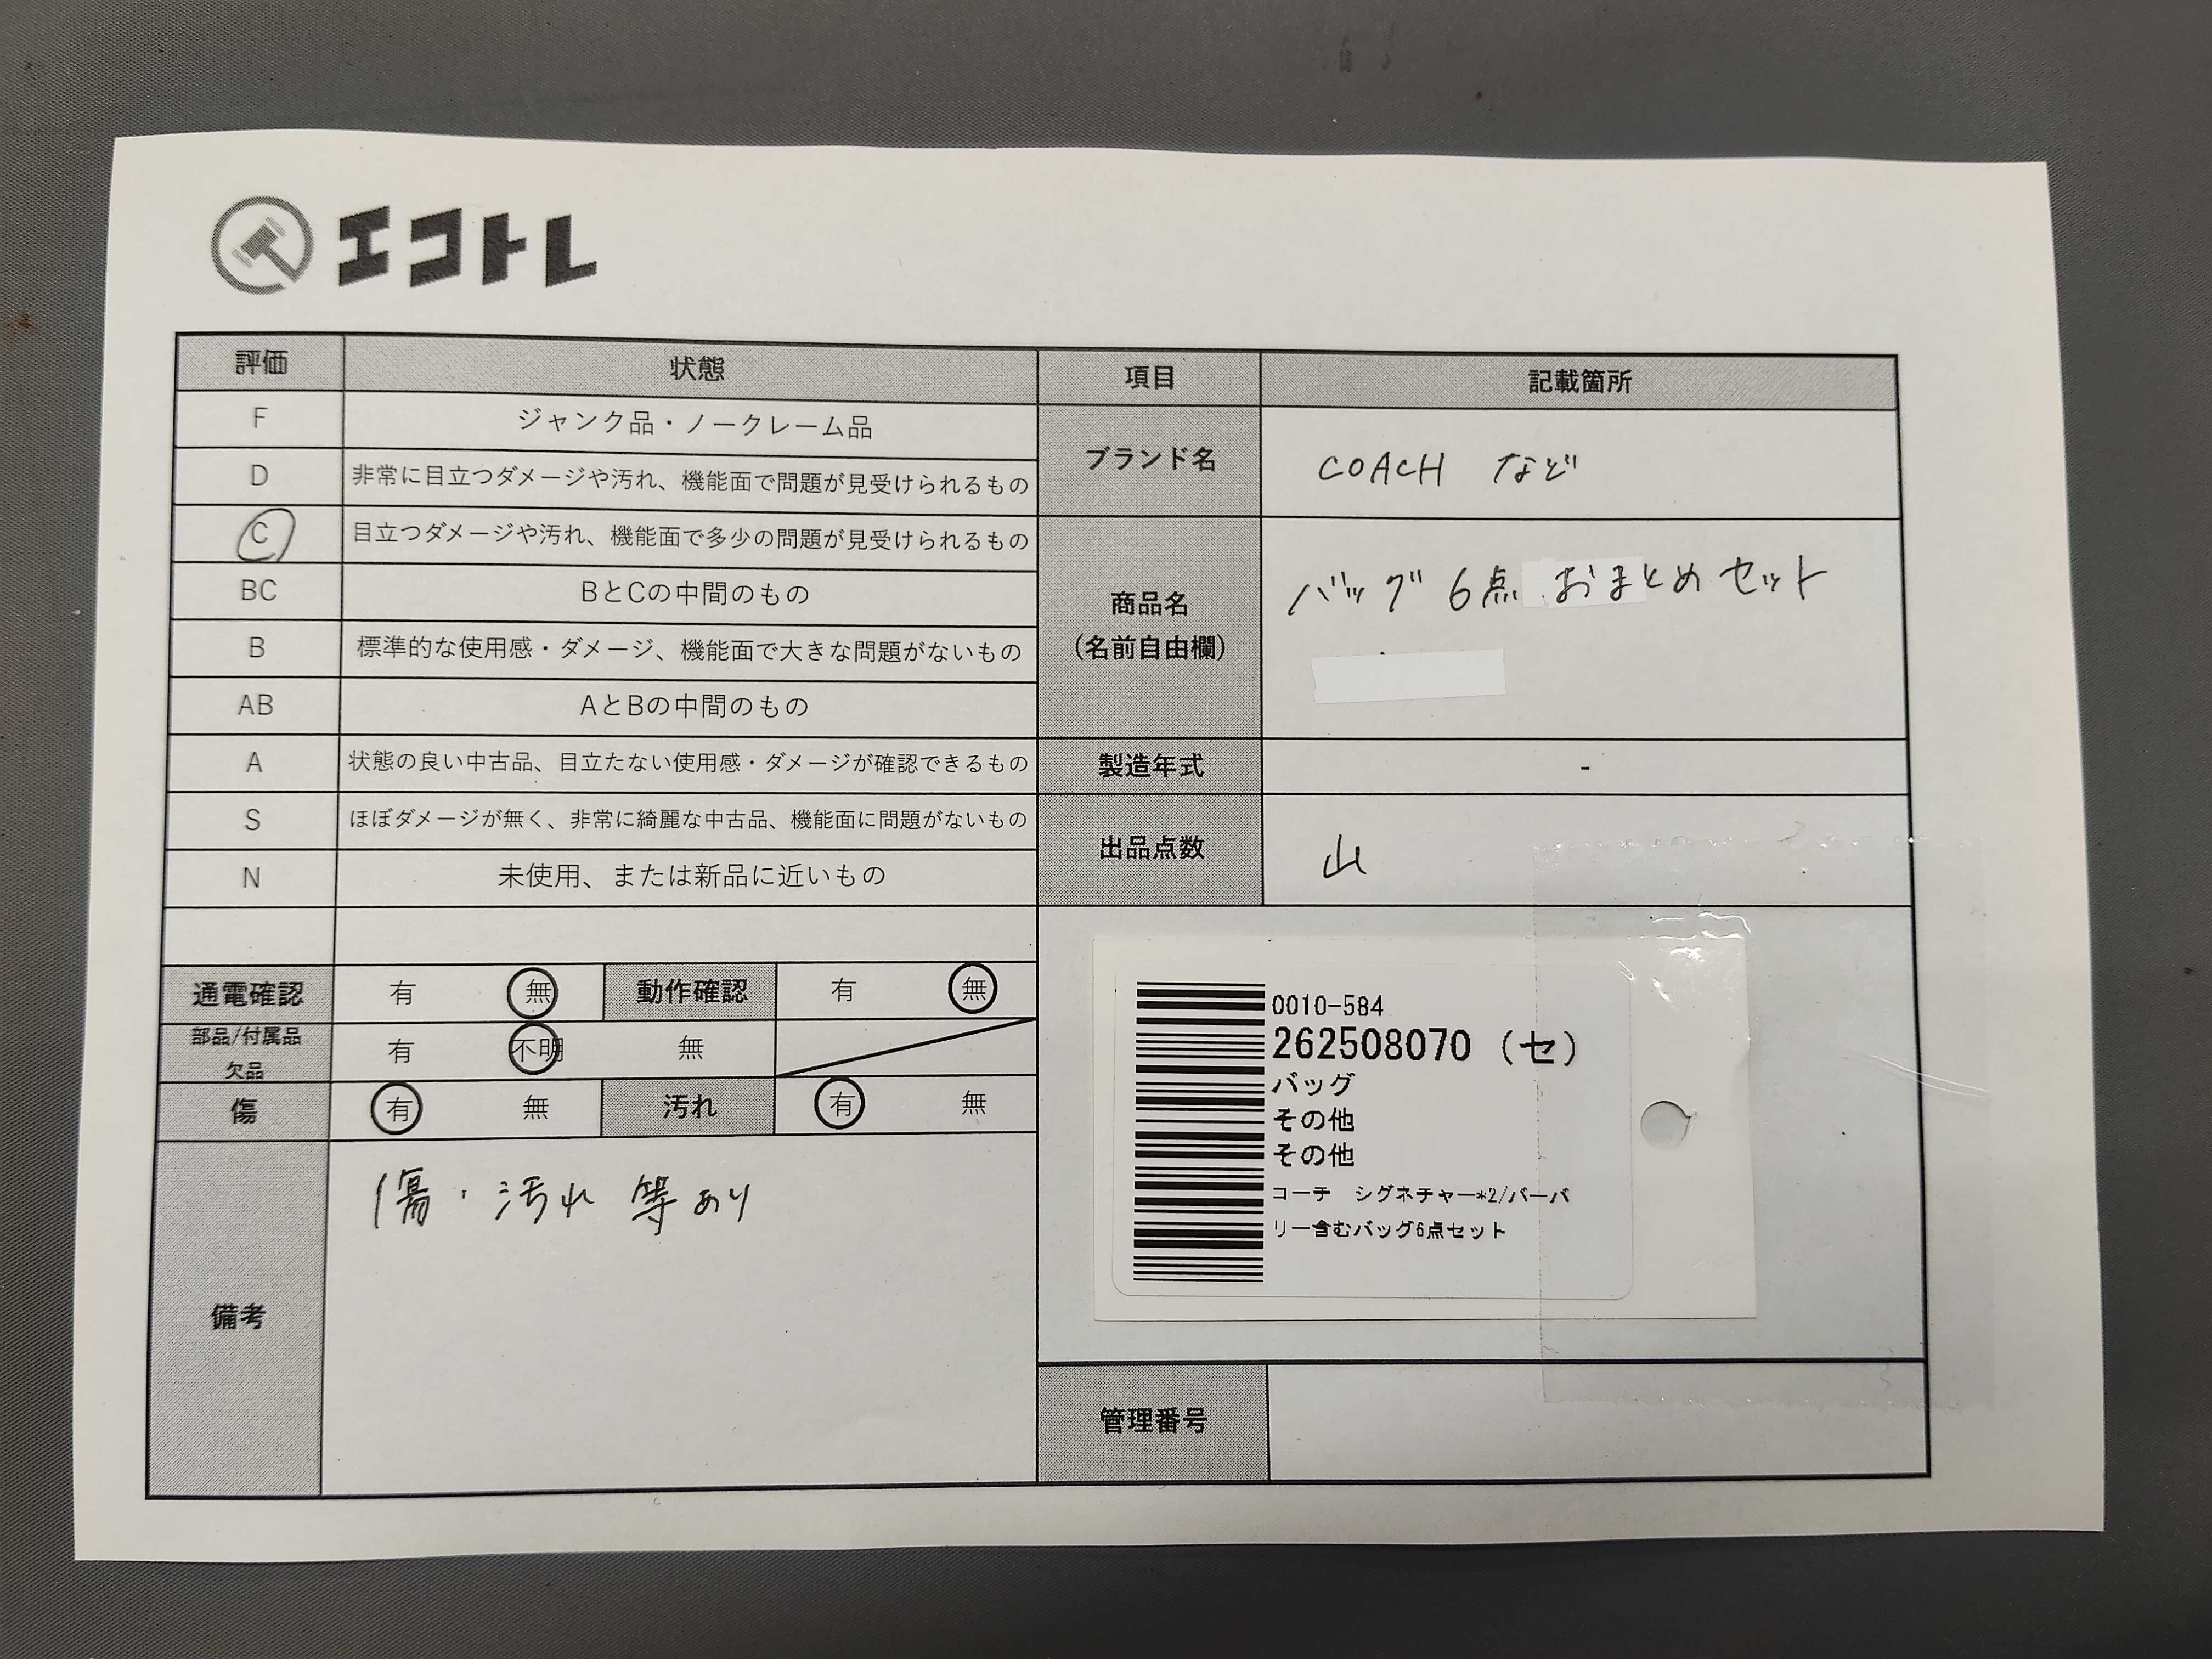 エコトレ
評価 状態 項目 記載箇所
F ジャンク品・ノークレーム品
D 非常に目立つダメージや汚れ、機能面で問題が見受けられるもの
C 目立つダメージや汚れ、機能面で多少の問題が見受けられるもの
BC BとCの中間のもの
B 標準的な使用感・ダメージ、機能面で大きな問題がないもの
AB AとBの中間のもの
A 状態の良い中古品、目立たない使用感・ダメージが確認できるもの
S ほぼダメージが無く、非常に綺麗な中古品、機能面に問題がないもの
N 未使用、または新品に近いもの
ブランド名 COACH など
商品名
(名前自由欄)
バッグ 6点 おまとめセット
製造年式 -
出品点数 山
通電確認 有 無 動作確認 有 無
部品/付属品
欠品
有 不明 無
傷 有 無 汚れ 有 無
備考
傷・汚れ 等あり
0010-584
262508070 (セ)
バッグ
その他
その他
コーチ シグネチャー*2/バーバ
リー含むバッグ6点セット
管理番号